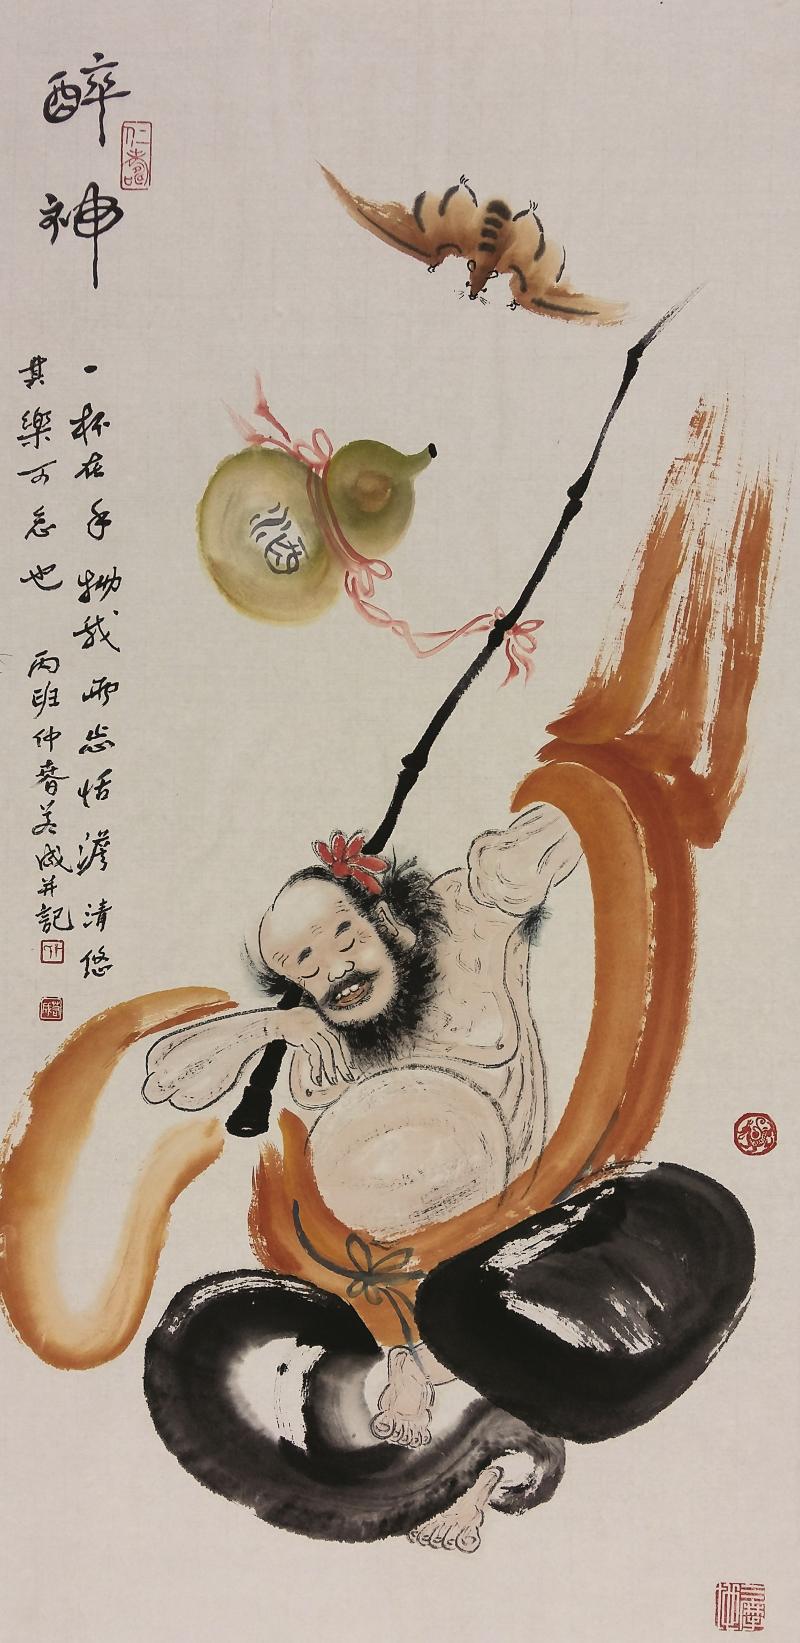 醉神
一杯在手物我兩忘恬澹清悠
其樂可也 丙仲春成并記
酒